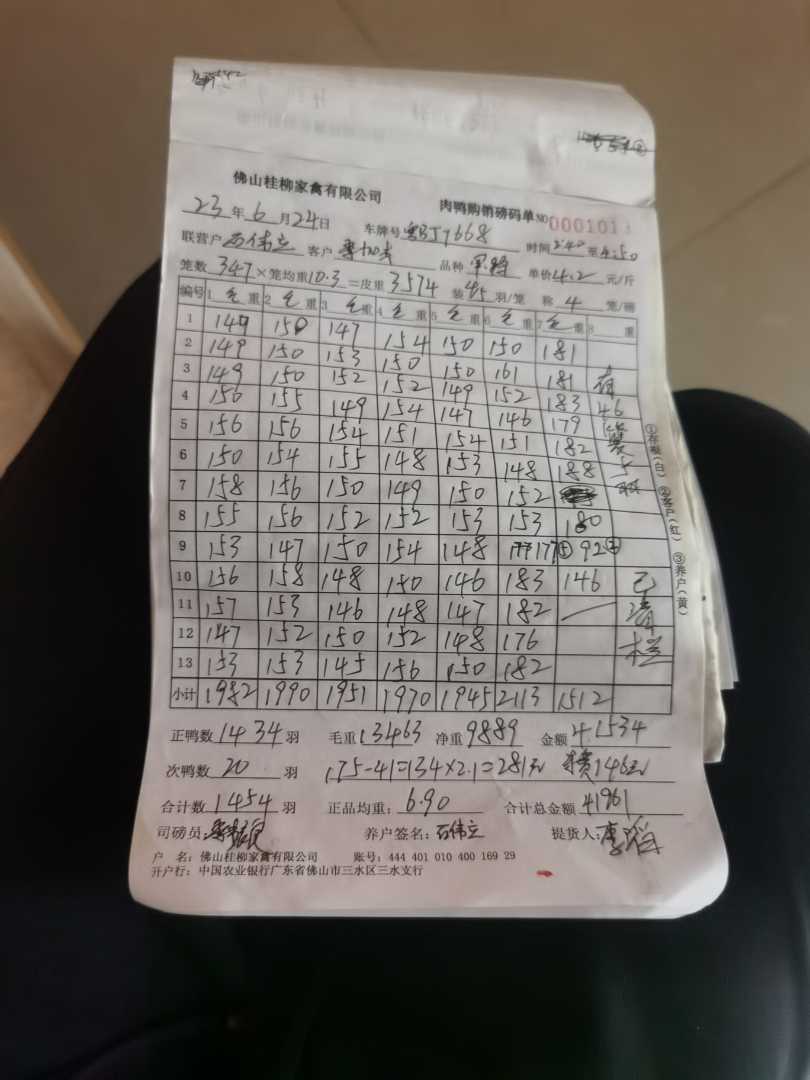 佛山桂柳家禽有限公司 肉鸭购销磅码单 NO 000101
23年6月24日 车牌号粤BJ7668 时间2:40至4:50
联营户石伟立 客户 品种 单价4.2元/斤
笼数347×笼均重10.3=皮重3574 装 羽/笼 称4笼/磅
编号 1毛重 2毛重 3毛重 4毛重 5毛重 6毛重 7毛重 8 重
1 149 150 147 154 150 150 181
2 149 150 153 150 150 161 181
3 149 150 152 152 149 152 183
4 156 155 149 154 147 146 179 46
5 156 156 154 151 154 151 182
6 150 154 155 148 153 148 188
7 158 156 150 149 150 152
8 155 156 152 152 153 153 180
9 153 147 150 154 148 177 92
10 156 158 148 150 146 183 146 已
11 157 153 146 148 147 182 清
12 147 152 150 152 148 176 栏
13 153 153 145 156 150 182
小计 1982 1990 1951 1970 1945 2113 1512
正鸭数1434羽 毛重13463 净重9889 金额41534
次鸭数20羽 175-41=134×2.1=281元 146元
合计数1454羽 正品均重:6.90 合计总金额41961
司磅员: 养户签名:石伟立 提货人:李
户 名:佛山桂柳家禽有限公司 账号:444 401 010 400 169 29
开户行:中国农业银行广东省佛山市三水区三水支行
①存根(白) ②客户(红) ③养户(黄)